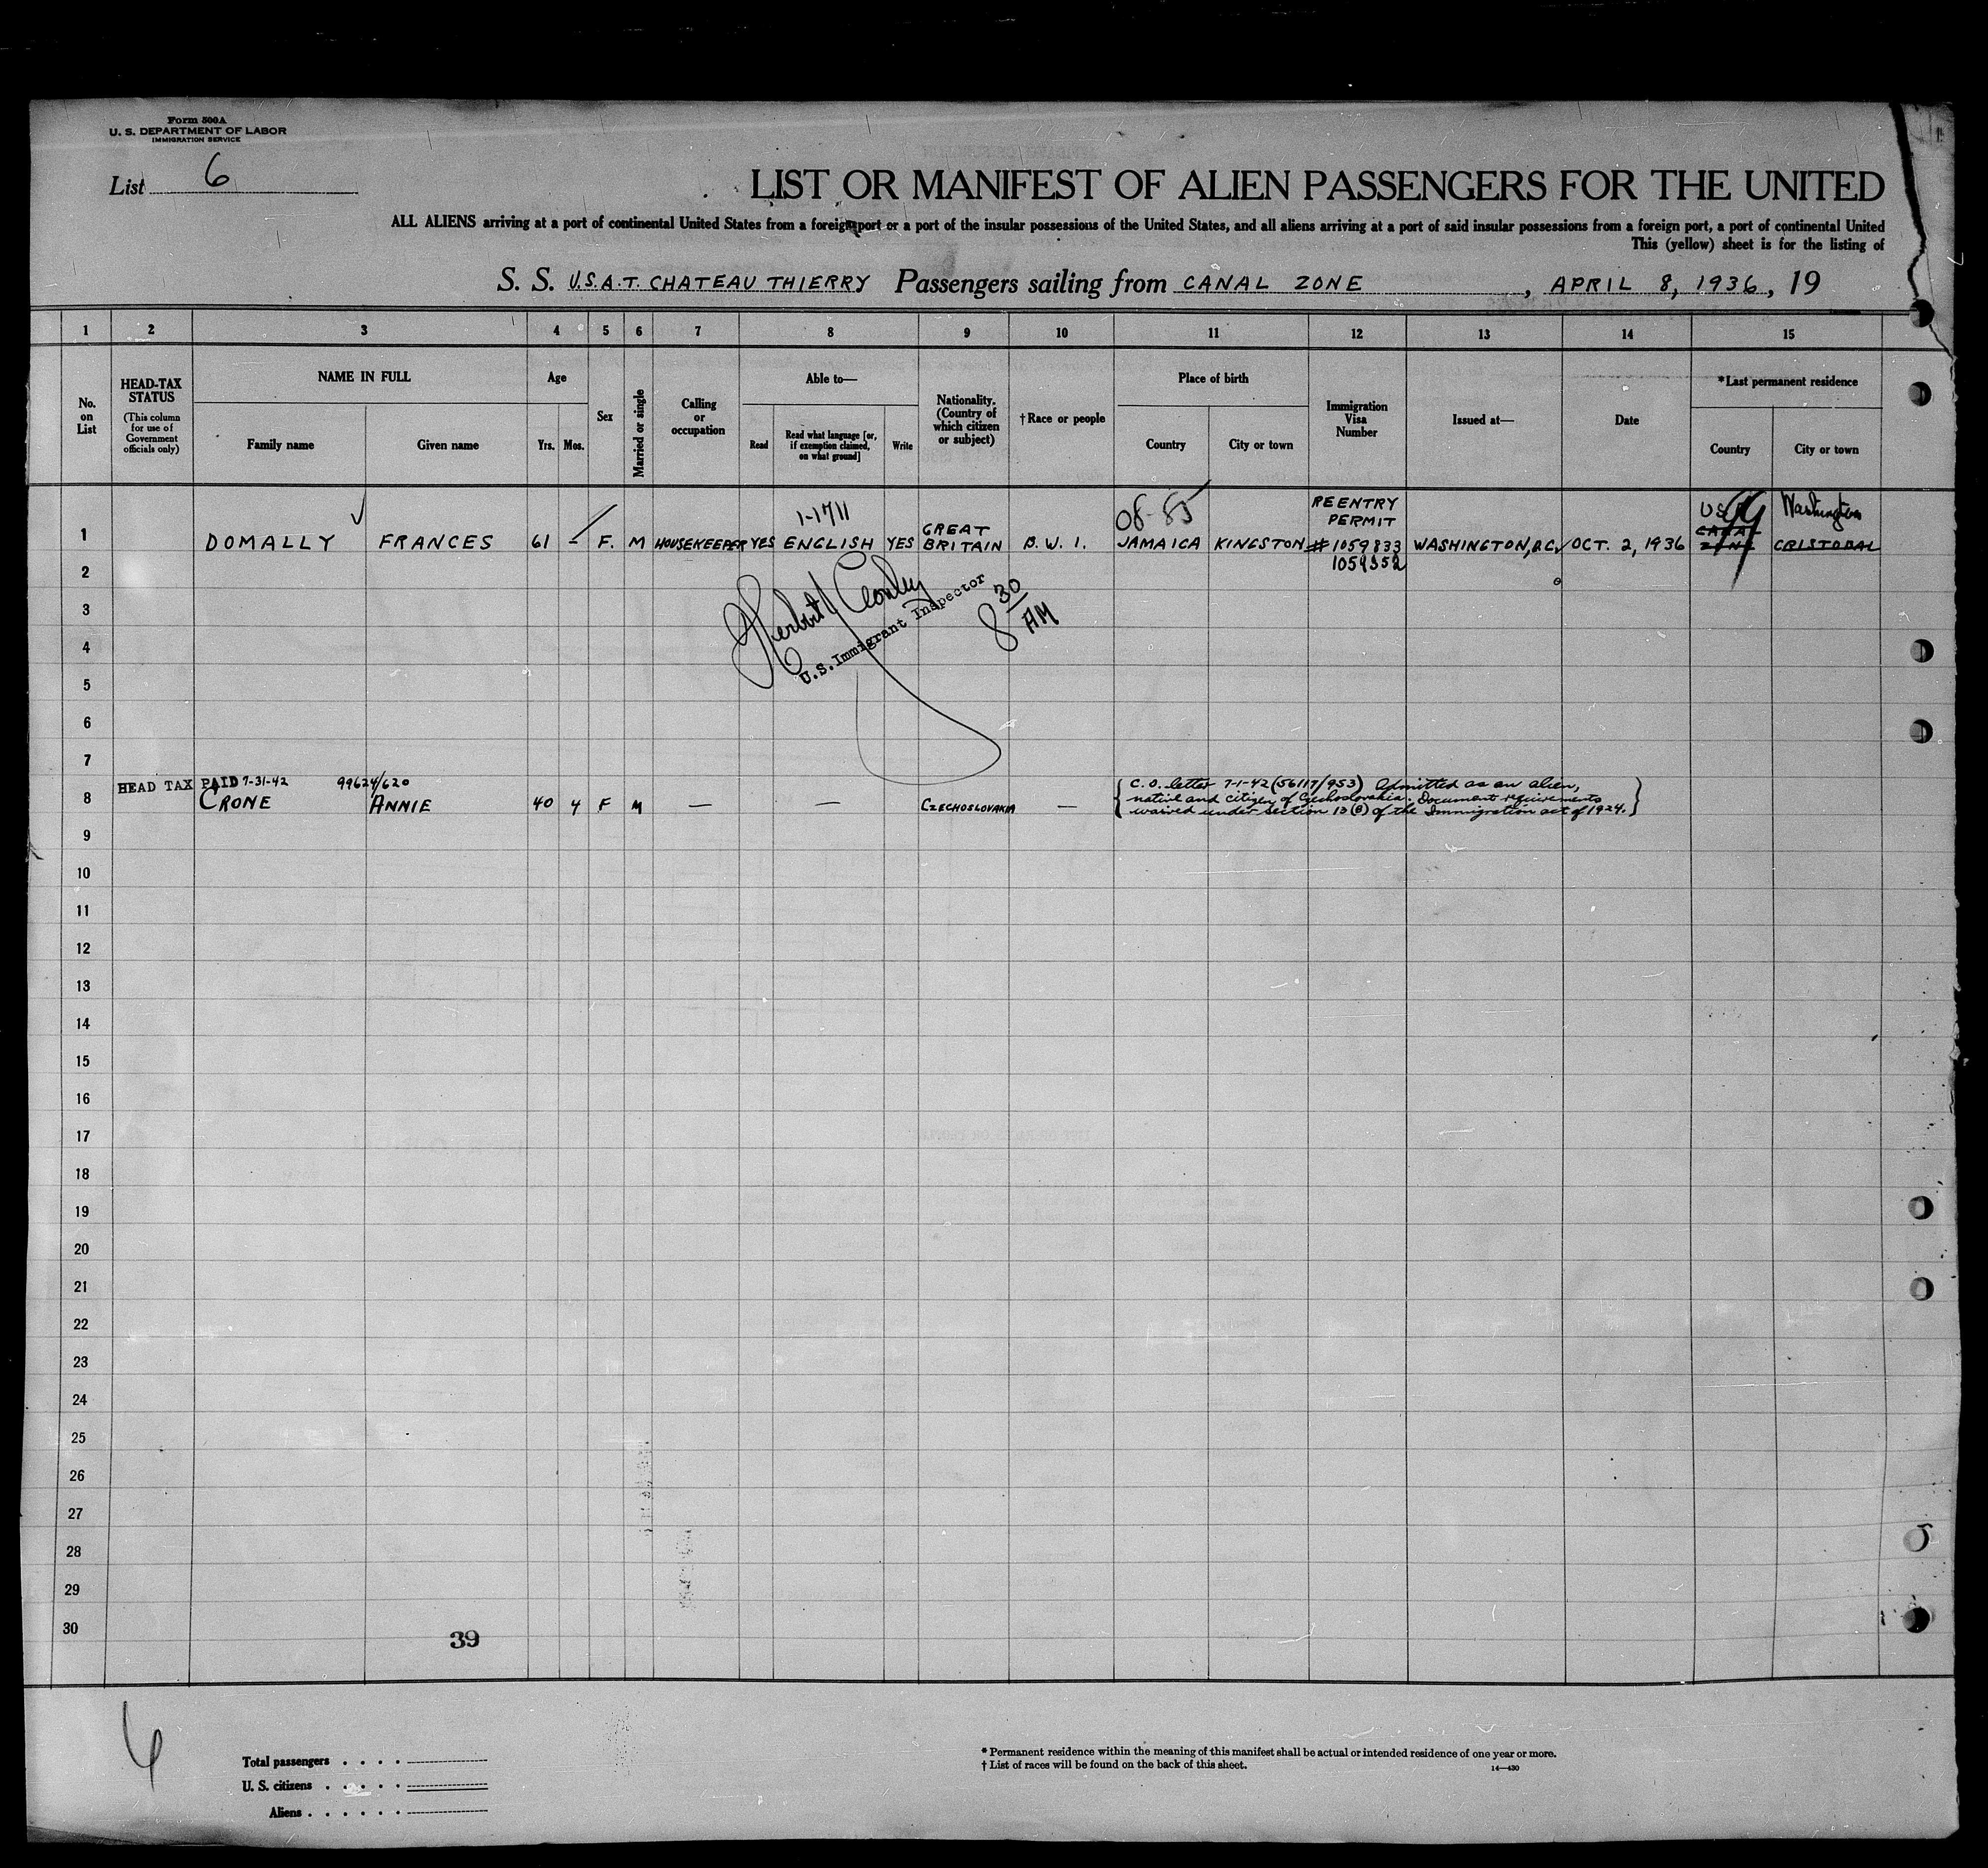 Form 500A
U. S. DEPARTMENT OF LABOR
IMMIGRATION SERVICE
List 6
LIST OR MANIFEST OF ALIEN PASSENGERS FOR THE UNITED
ALL ALIENS arriving at a port of continental United States from a foreign port or a port of the insular possessions of the United States, and all aliens arriving at a port of said insular possessions from a foreign port, a port of continental United
This (yellow) sheet is for the listing of
S. S. U.S.A.T. CHATEAU THIERRY Passengers sailing from CANAL ZONE, APRIL 8, 1936, 19
1 2 3 4 5 6 7 8 9 10 11 12 13 14 15
No. on List
HEAD-TAX STATUS
(This column for use of Government officials only)
NAME IN FULL
Family name Given name
Age
Yrs. Mos.
Sex
Married or single
Calling or occupation
Able to—
Read
Read what language [or, if exemption claimed, on what ground]
Write
Nationality. (Country of which citizen or subject)
† Race or people
Place of birth
Country City or town
Immigration Visa Number
Issued at—
Date
* Last permanent residence
Country City or town
1-1711
08-85
REENTRY
PERMIT
Washington
1 DOMALLY FRANCES 61 - F. M HOUSEKEEPER YES ENGLISH YES GREAT BRITAIN B. W. I. JAMAICA KINGSTON #1059833 WASHINGTON, D.C. OCT. 2, 1936 CANAL ZONE CRISTOBAL
1059352
2
Herbert
U.S. Immigrant Inspector
8 30 AM
3
4
5
6
7
HEAD TAX PAID 7-31-42 99624/620
8 CRONE ANNIE 40 4 F M — — CZECHOSLOVAKIA —
C.O. letter 7-1-42 (56117/953) Admitted as an alien,
native and citizen of Czechoslovakia. Document requirements
waived under section 13 (B) of the Immigration act of 1924.
9
10
11
12
13
14
15
16
17
18
19
20
21
22
23
24
25
26
27
28
29
30
39
6
Total passengers
U. S. citizens
Aliens
* Permanent residence within the meaning of this manifest shall be actual or intended residence of one year or more.
† List of races will be found on the back of this sheet.
14—430